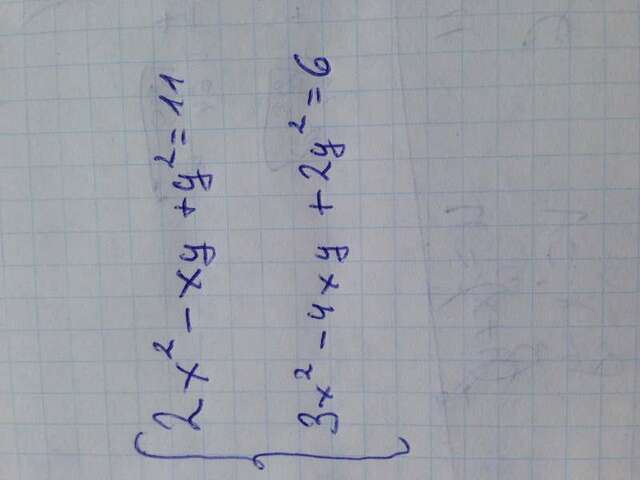 2x² - xy + y² = 11
3x² - 4xy + 2y² = 6